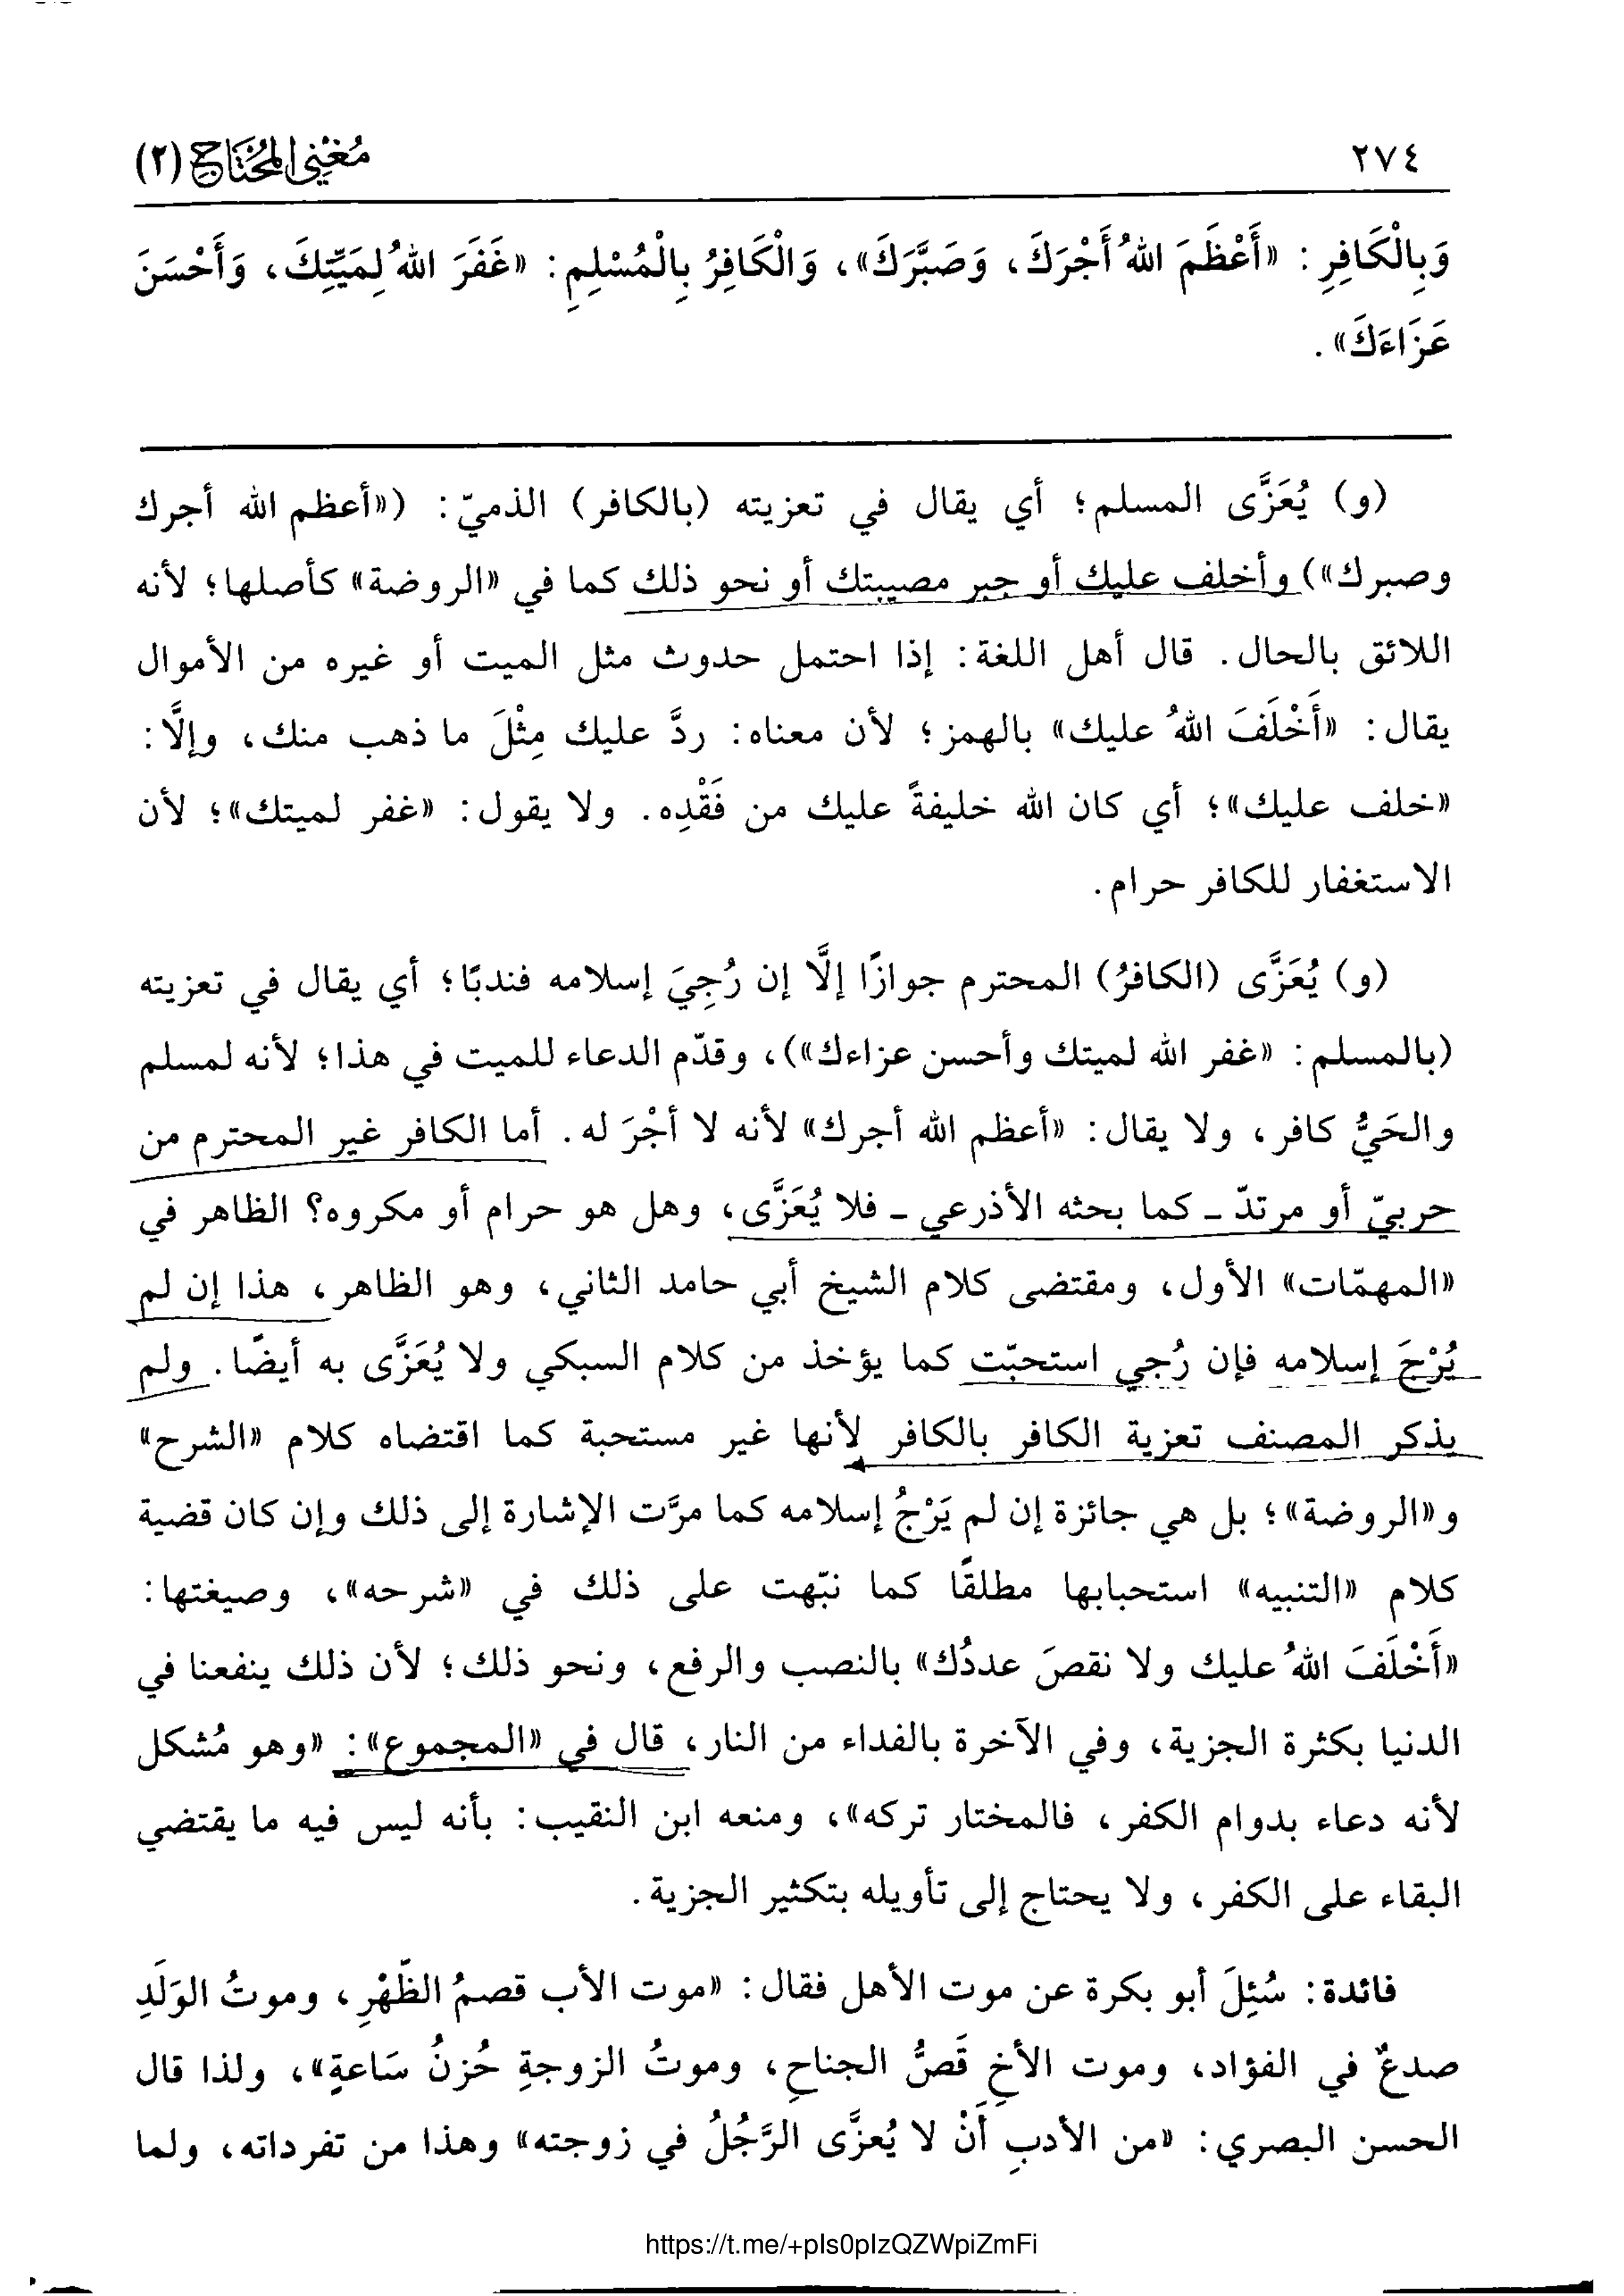 ٢٧٤
مُغْنِي المُحْتَاج (٢)
وَبِالْكَافِرِ: «أَعْظَمَ اللهُ أَجْرَكَ، وَصَبَّرَكَ»، وَالْكَافِرُ بِالْمُسْلِمِ: «غَفَرَ اللهُ لِمَيِّتِكَ، وَأَحْسَنَ
عَزَاءَكَ».
(و) يُعَزَّى المسلم؛ أي يقال في تعزيته (بالكافر) الذميّ: («أعظم الله أجرك
وصبرك») وأخلف عليك أو جبر مصيبتك أو نحو ذلك كما في «الروضة» كأصلها؛ لأنه
اللائق بالحال. قال أهل اللغة: إذا احتمل حدوث مثل الميت أو غيره من الأموال
يقال: «أَخْلَفَ اللهُ عليك» بالهمز؛ لأن معناه: ردَّ عليك مِثْلَ ما ذهب منك، وإلَّا:
«خلف عليك»؛ أي كان الله خليفةً عليك من فَقْدِه. ولا يقول: «غفر لميتك»؛ لأن
الاستغفار للكافر حرام.
(و) يُعَزَّى (الكافرُ) المحترم جوازًا إلَّا إن رُجِيَ إسلامه فندبًا؛ أي يقال في تعزيته
(بالمسلم: «غفر الله لميتك وأحسن عزاءك»)، وقدّم الدعاء للميت في هذا؛ لأنه لمسلم
والحَيُّ كافر، ولا يقال: «أعظم الله أجرك» لأنه لا أجْرَ له. أما الكافر غير المحترم من
حربيّ أو مرتدّ ـ كما بحثه الأذرعي ـ فلا يُعَزَّى، وهل هو حرام أو مكروه؟ الظاهر في
«المهمّات» الأول، ومقتضى كلام الشيخ أبي حامد الثاني، وهو الظاهر، هذا إن لم
يُرْجَ إسلامه فإن رُجي استحبّت كما يؤخذ من كلام السبكي ولا يُعَزَّى به أيضًا. ولم
يذكر المصنف تعزية الكافر بالكافر لأنها غير مستحبة كما اقتضاه كلام «الشرح»
و«الروضة»؛ بل هي جائزة إن لم يَرْجُ إسلامه كما مرَّت الإشارة إلى ذلك وإن كان قضية
كلام «التنبيه» استحبابها مطلقًا كما نبّهت على ذلك في «شرحه»، وصيغتها:
«أَخْلَفَ اللهُ عليك ولا نقصَ عددُك» بالنصب والرفع، ونحو ذلك؛ لأن ذلك ينفعنا في
الدنيا بكثرة الجزية، وفي الآخرة بالفداء من النار، قال في «المجموع»: «وهو مُشكل
لأنه دعاء بدوام الكفر، فالمختار تركه»، ومنعه ابن النقيب: بأنه ليس فيه ما يقتضي
البقاء على الكفر، ولا يحتاج إلى تأويله بتكثير الجزية.
فائدة: سُئِلَ أبو بكرة عن موت الأهل فقال: «موت الأب قصمُ الظَّهْرِ، وموتُ الوَلَدِ
صدعٌ في الفؤاد، وموت الأخِ قَصُّ الجناحِ، وموتُ الزوجةِ حُزنُ سَاعةٍ»، ولذا قال
الحسن البصري: «من الأدبِ أَنْ لا يُعزَّى الرَّجُلُ في زوجته» وهذا من تفرداته، ولما
https://t.me/+pls0plzQZWpiZmFi